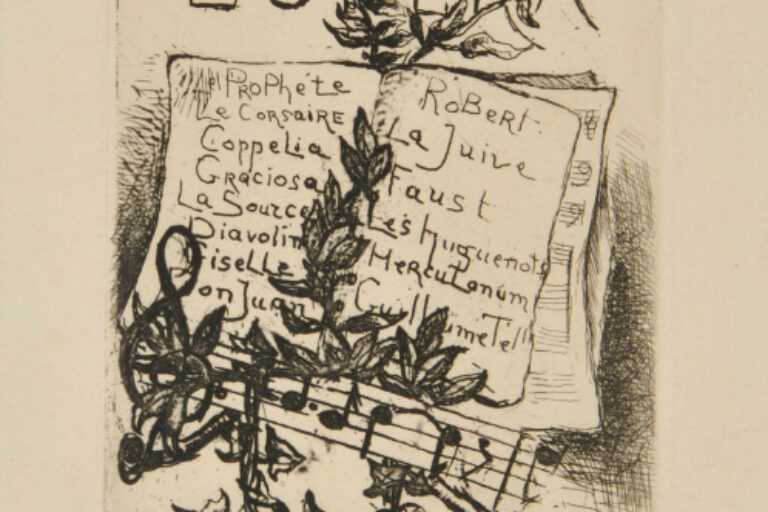 Prophéte
Le Corsaire
Coppelia
Graciosa
La Source
Diavolin
Giselle
Don Juan
Robert
La Juive
Faust
Les Huguenots
Guillaume Tell